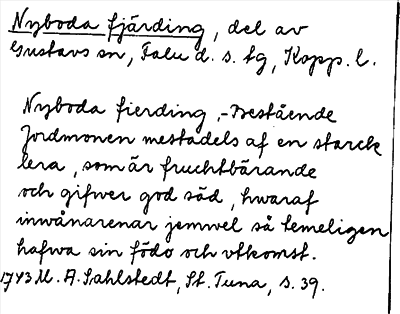 Nyboda fjärding, del av
Gustavs sn, Falu d. s. tg, Kopp. l.
Nyboda fierding,-Bestående
Jordmonen mestadels af en starck
lera, som är fruchtbärande
och gifwer god säd, hwaraf
inwånarenar jemwel så temeligen
hafwa sin födo och vtkomst.
1743 M. A. Sahlstedt, St. Tuna, s. 39.